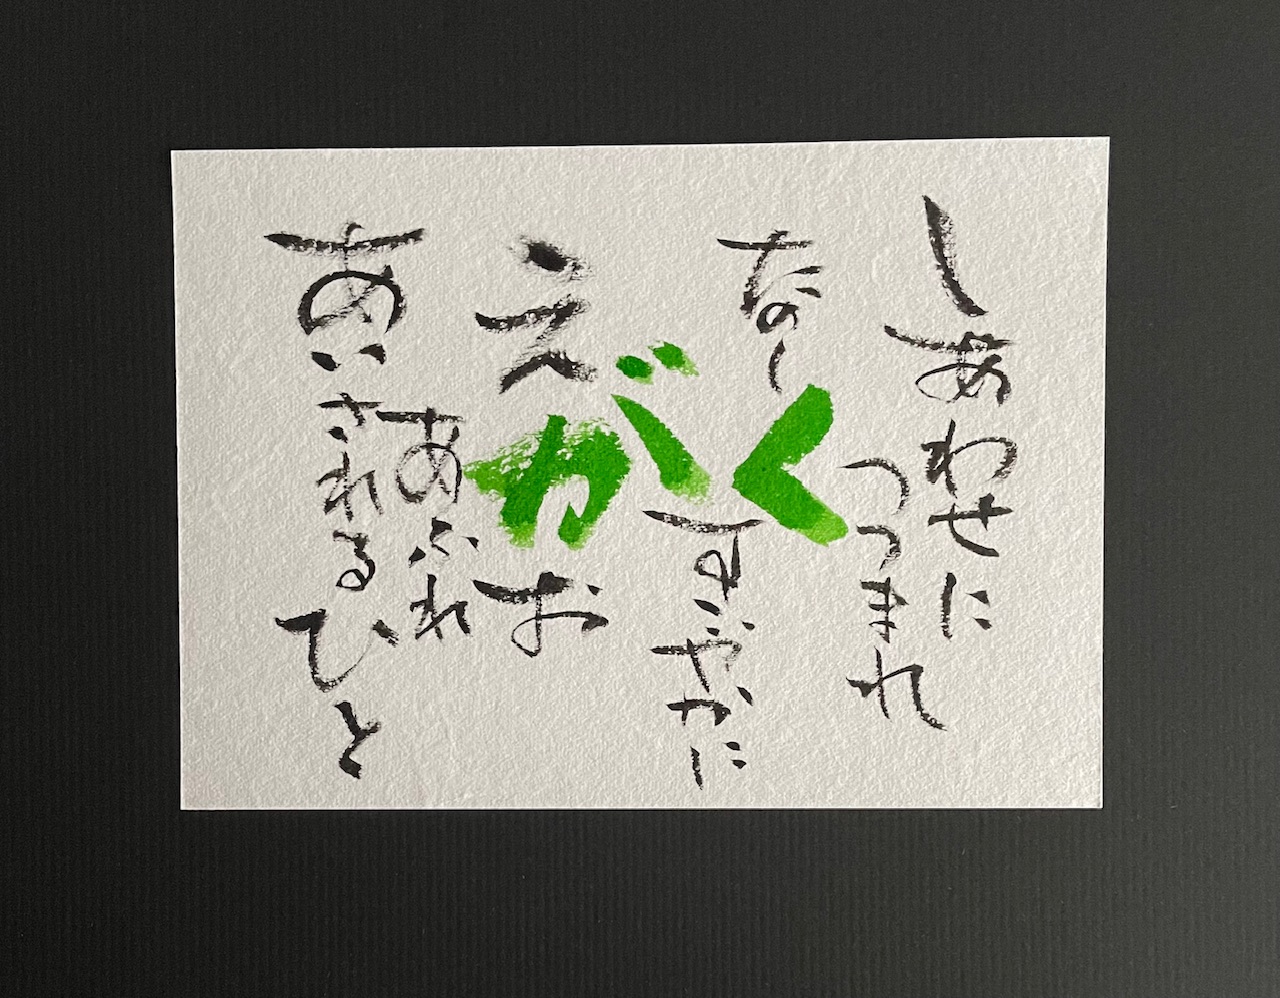 しあわせに
つつまれ
たのしく
すこやかに
えがお
あふれ
あいされるひと